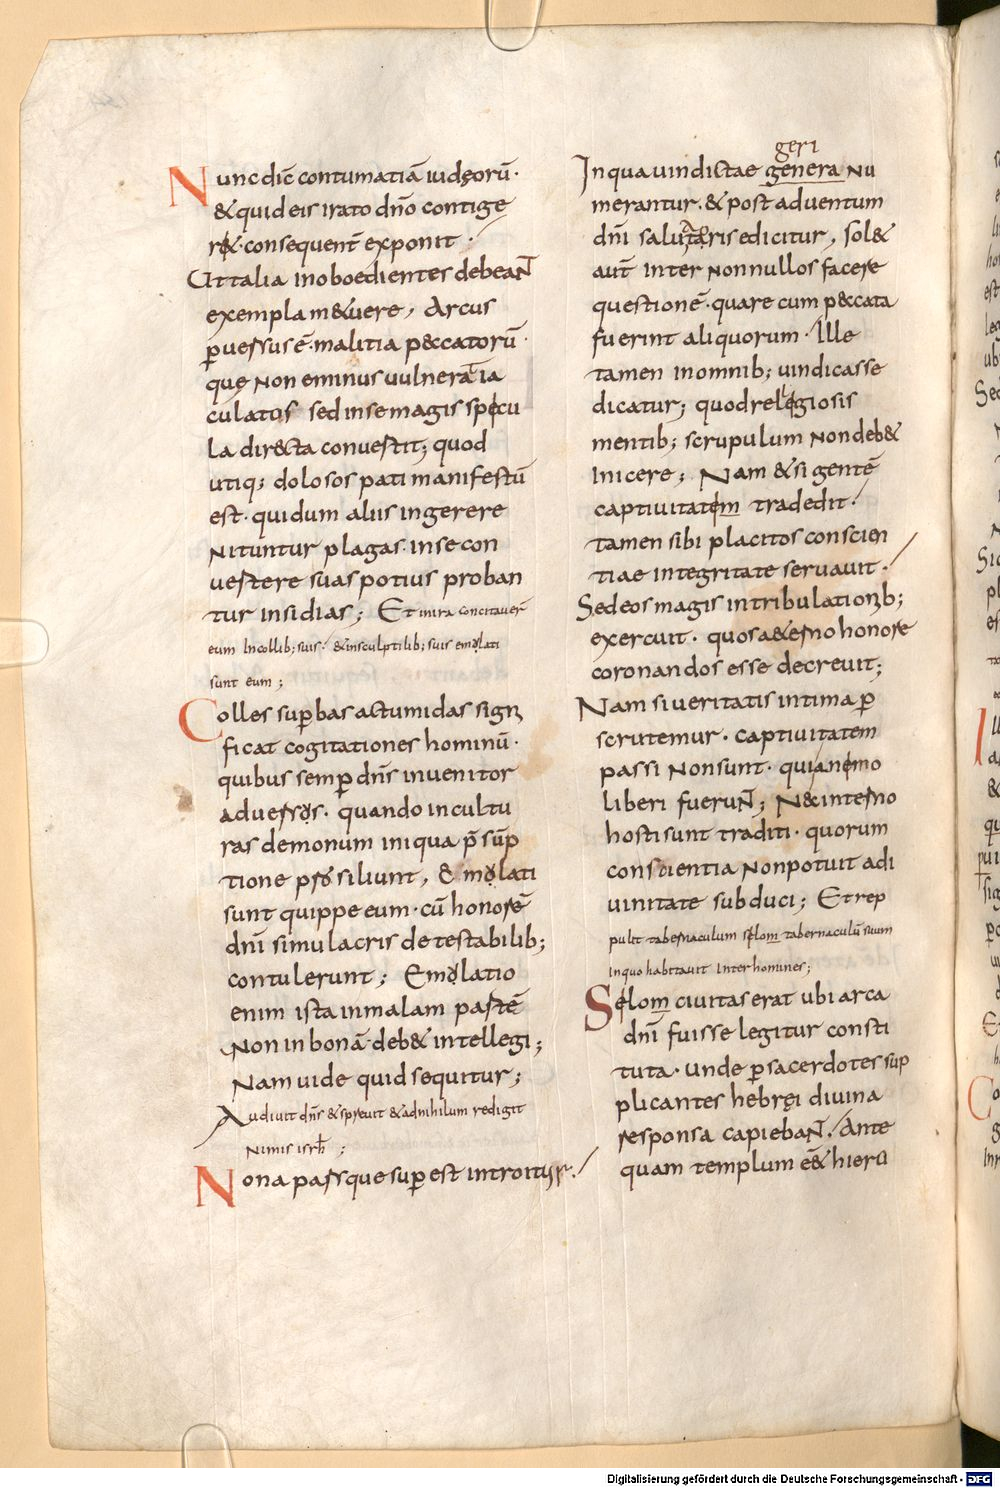 Nunc dic̄ contumatiā iudęorū·
& quid eis irato dn̄o contige
r&· consequent̄ exponit·
Ut talia inoboedientes debeant
exempla m&uere, Arcus
ꝑuersus ē· malitia peccatorū·
quę non eminus uulnera ia
culatur sed in se magis specu
la directa conuertit; quod
utiq; dolosos pati manifestū
est· qui dum aliis ingerere
nituntur plagas· in se con
uertere suas potius proban
tur insidias; Et in ira concitauer̄
eum In collib; suis· & in sculptilib; suis emulati
sunt eum;
Colles suꝑbas ac tumidas signi
ficat cogitationes hominū·
quibus semꝑ dn̄s inuenitor
aduersus· quando in cultu
ras demonum iniqua p̄sūp
tione prosiliunt, & emulati
sunt quippe eum· cū honorē
dn̄i simulacris detestabilib;
contulerunt; Emulatio
enim ista in malam partē
Non in bonā· deb& intellegi;
Nam uide quid sequitur;
Audiuit dn̄s & spreuit & ad nihilum redigit
nimis isrł;
Nona pars que suꝑest introitur·
geri
In qua uindictae genera nu
merantur· & post aduentum
dn̄i salutaris edicitur, sol&
aut̄ inter nonnullos facere
questionē· quare cum peccata
fuerint aliquorum· Ille
tamen in omnib; uindicasse
dicatur; quod religiosis
mentib; scrupulum non deb&
inicere; Nam & si gentē
captiuitatem tradedit·
tamen sibi placitos conscien
tiae integritate seruauit·
Sed eos magis in tribulationib;
exercuit· quos aeterno honore
coronandos esse decreuit;
Nam si ueritatis intima ꝑ
scrutemur· captiuitatem
passi non sunt· qui animo
liberi fuerunt; N& interno
hosti sunt traditi· quorum
conscientia non potuit a di
uinitate subduci; Et rep
pulit tabernaculum selom tabernaculū suum
in quo habitauit inter homines;
Selom ciuitas erat ubi arca
dn̄i fuisse legitur consti
tuta· unde ꝑ sacerdotes sup
plicantes hebręi diuina
responsa capiebant· Ante
quam templum e& hieru
Digitalisierung gefördert durch die Deutsche Forschungsgemeinschaft - DFG